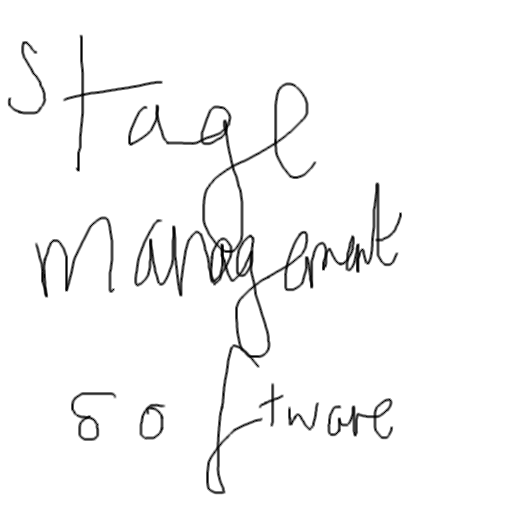 Stage
management
software